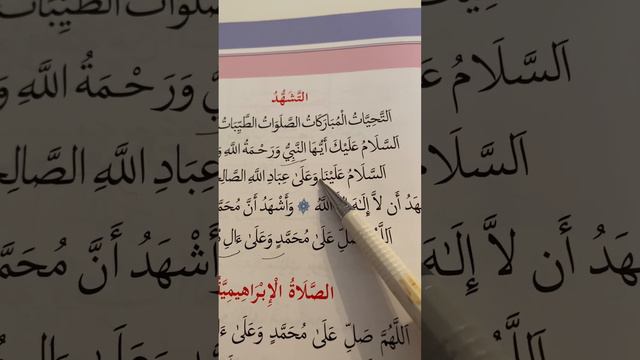 اَلتَّشَهُّدُ
اَلتَّحِيَّاتُ الْمُبَارَكَاتُ الصَّلَوَاتُ الطَّيِّبَاتُ
اَلسَّلَامُ عَلَيْكَ أَيُّهَا النَّبِيُّ وَرَحْمَةُ اللَّهِ
اَلسَّلَامُ عَلَيْنَا وَعَلَى عِبَادِ اللَّهِ
أَن لَّا إِلَٰهَ اللَّهُ وَأَشْهَدُ أَنَّ
صَلِّ عَلَىٰ مُحَمَّدٍ وَعَلَىٰ ءَالِ
الصَّلَاةُ الْإِبْرَاهِيمِيَّةُ
اَللَّهُمَّ صَلِّ عَلَىٰ مُحَمَّدٍ وَعَلَىٰ